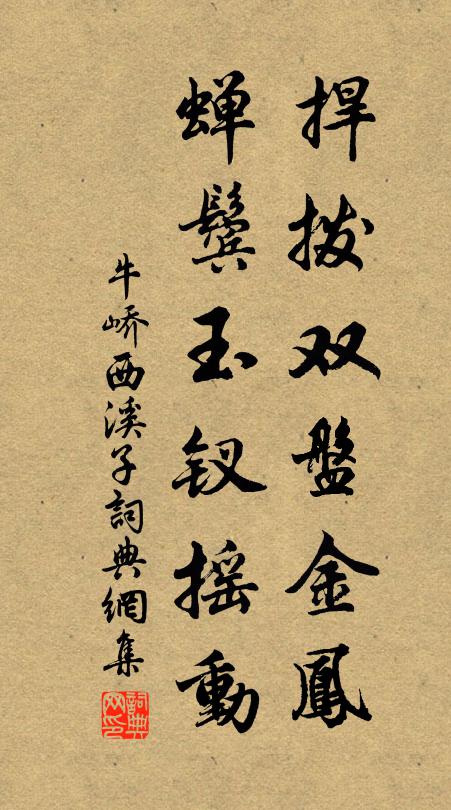 捍拨双盘金鳳
蝉鬓玉钗摇動
牛峤西溪子詞典網集
詞典網印